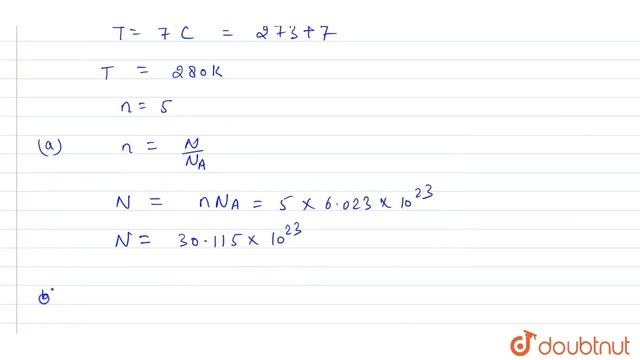 T = 7 C = 273+7
T = 280K
n = 5
(a) n = N/NA
N = nNA = 5 × 6.023 × 10^23
N = 30.115 × 10^23
b
doubtnut